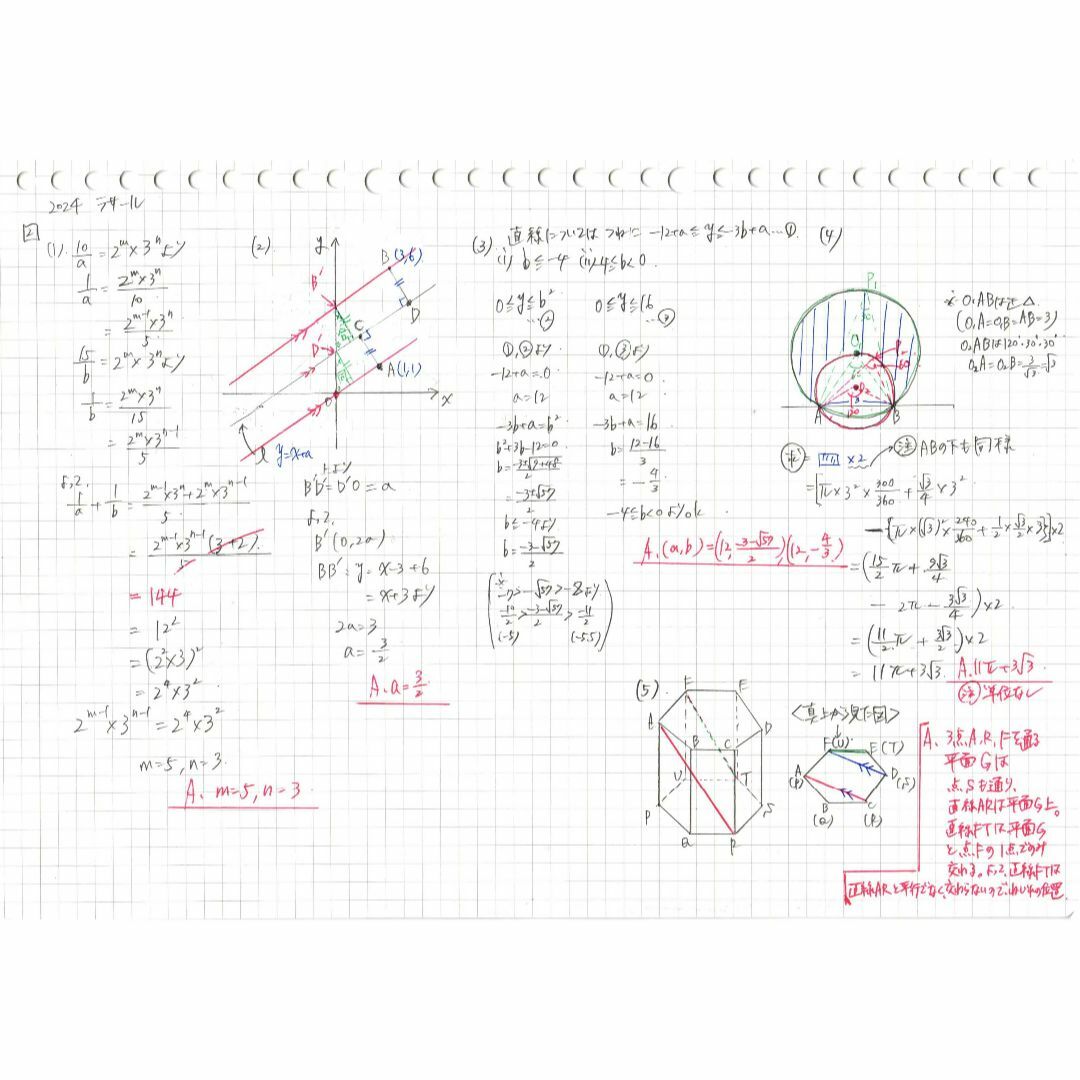 2024 ラサール
2
(1). 10/a = 2^m×3^n より
1/a = 2^m×3^n/10
= 2^(m-1)×3^n/5
15/b = 2^m×3^n より
1/b = 2^m×3^n/15
= 2^m×3^(n-1)/5
よって,
1/a + 1/b = 2^(m-1)×3^n+2^m×3^(n-1)/5
= 2^(m-1)×3^(n-1)(3+2)/5
= 144
= 12²
= (2²×3)²
= 2⁴×3²
2^(m-1)×3^(n-1) = 2⁴×3²
m=5, n=3.
A. m=5, n=3
(2)
y
B (3,6)
B'
C
D
D'
A(1,1)
O
x
l y=x+a
上より
B'D'=D'O=a
よって,
B'(0,2a)
BB': y=x-3+6
=x+3より
2a=3
a=3/2
A. a=3/2
(3) 直線については つねに -12+a≦y≦-3b+a…①
(i) b≦-4 (ii)-4≦b<0
0≦y≦b²
…②
①,②より
-12+a=0
a=12
-3b+a=b²
b²+3b-12=0
b=-3±√9+48/2
=-3±√57/2
b≦-4より
b=-3-√57/2
※
-7>-√57>-8より
-10/2>-3-√57/2>-11/2
(-5) (-5.5)
0≦y≦16
…③
①,③より
-12+a=0
a=12
-3b+a=16
b=12-16/3
=-4/3
-4≦b<0よりok
A.(a,b)=(12,-3-√57/2),(12,-4/3)
(4)
P₁
O₁
P
O₂
A
B
※ O₁ABは正△
(O₁A=O₁B=AB=3)
O₂ABは120°.30°.30°
O₂A=O₂B=3/√3=√3
求=×2
注 ABの下も同様
=[π×3²×300/360+√3/4×3²
-{π×(√3)²×240/360+1/2×√3/2×3}]×2
=(15/2π+9√3/4
-2π-3√3/4)×2
=(11/2π+3√3/2)×2
=11π+3√3 A.11π+3√3
注 単位なし
(5)
F
E
A
D
B
C
U
T
P
S
Q
R
<真上から見た図>
F(U)
E(T)
A
(P)
D
(S)
B
(Q)
C
(R)
A. 3点A,R,Fを通る
平面Gは
点Sも通り,
直線ARは平面G上。
直線FTは平面G
と点Fの1点でのみ
交わる。よって,直線FTは
直線ARと平行でなく,交わらないので,ねじれの位置